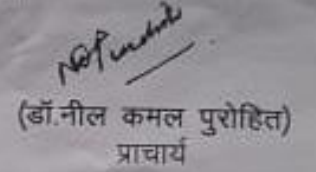 (डॉ.नील कमल पुरोहित)
प्राचार्य